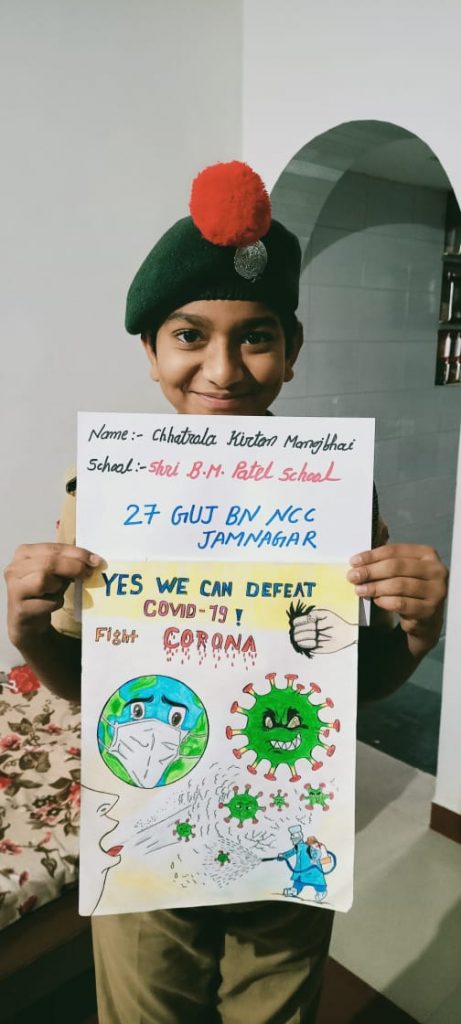 Name:- Chhatrala Kirtan Manojbhai
School:- Shri B.M. Patel School
27 GUJ BN NCC
JAMNAGAR
YES WE CAN DEFEAT
COVID-19 !
Fight CORONA